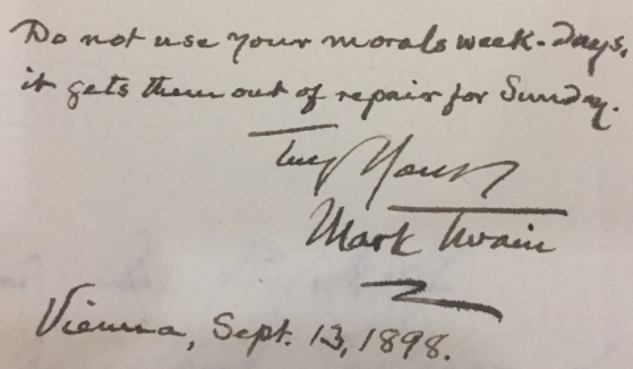 Do not use your morals week-days,
it gets them out of repair for Sunday.
Truly Yours
Mark Twain
Vienna, Sept. 13, 1898.